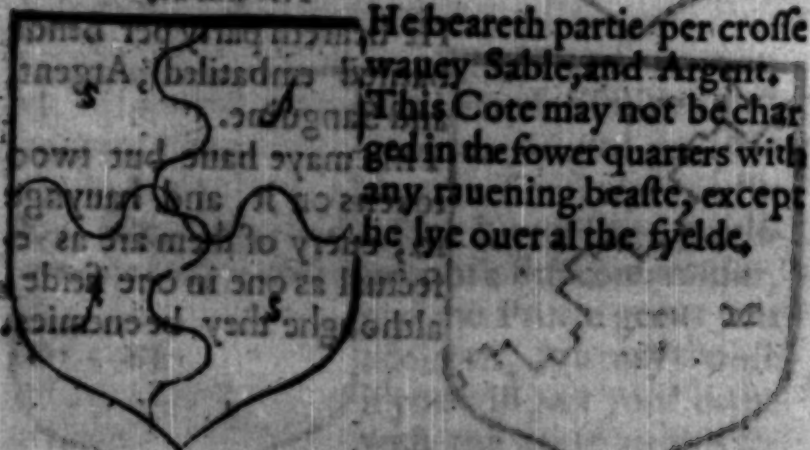 He beareth partie per crosse
wauey Sable, and Argent.
This Cote may not be char
ged in the fower quarters with
any rauening beaste, except
he lye ouer al the fyelde.
S A
A S